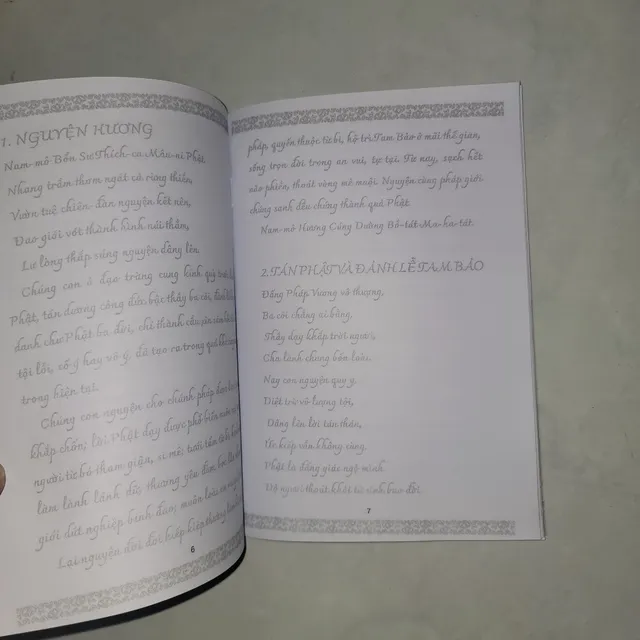 1. NGUYỆN HƯƠNG
Nam-mô Bổn Sư Thích-ca Mâu-ni Phật
Nhang trầm thơm ngát cả rừng thiền,
Vườn tuệ chiên-đàn nguyện kết nên,
Đao giới vót thành hình núi thẳm,
Lư lòng thắp sáng nguyện dâng lên.
Chúng con ở đạo tràng cung kính quỳ trước
Phật, tán dương công đức bậc thầy ba cõi,
danh chư Phật ba đời, chí thành cầu xin sám
tội lỗi, cố ý hay vô ý, đã tạo ra trong quá
trong hiện tại.
Chúng con nguyện cho chánh pháp
khắp chốn, lời Phật dạy được phổ biến
người từ bỏ tham giận, si mê
làm lành lánh dữ, thương yêu
giới dứt nghiệp binh đao, muôn loài
Lại nguyện đời đời kiếp kiếp thường
6
pháp, quyến thuộc từ bi, hộ trì Tam Bảo ở mãi thế gian,
sống trọn đời trong an vui, tự tại. Từ nay, sạch hết
não phiền, thoát vòng mê muội. Nguyện cùng pháp giới
chúng sanh đều chứng thành quả Phật.
Nam-mô Hương Cúng Dường Bồ-tát Ma-ha-tát.
2. TÁN PHẬT VÀ ĐẢNH LỄ TAM BẢO
Đấng Pháp Vương vô thượng,
Ba cõi chẳng ai bằng,
Thầy dạy khắp trời người,
Cha lành chung bốn loài.
Nay con nguyện quy y.
Diệt trừ vô lượng tội,
Dâng lên lời tán thán,
Ức kiếp vẫn không cùng.
Phật là đấng giác ngộ mình
Độ người thoát khỏi tử sinh bao đời.
7